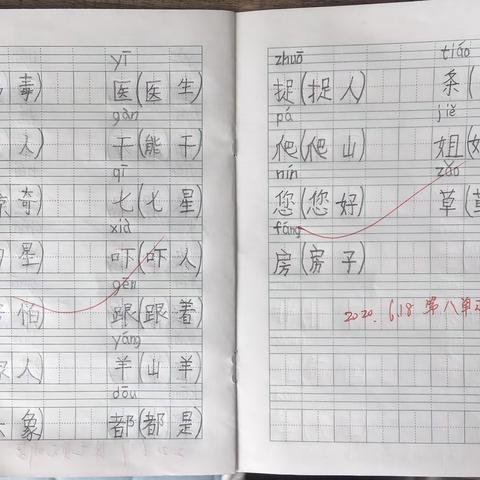 yī
毒) 医(医生)
gàn
人) 干(能干)
qī
奇) 七(七星)
xià
星) 吓(吓人)
gēn
怕) 跟(跟着)
yáng
人) 羊(山羊)
dōu
象) 都(都是)
zhuō tiáo
捉(捉人) 条(
pá jiě
爬(爬山) 姐(
nín zǎo
您(您好) 草(
fáng
房(房子)
2020.6.18 第八单